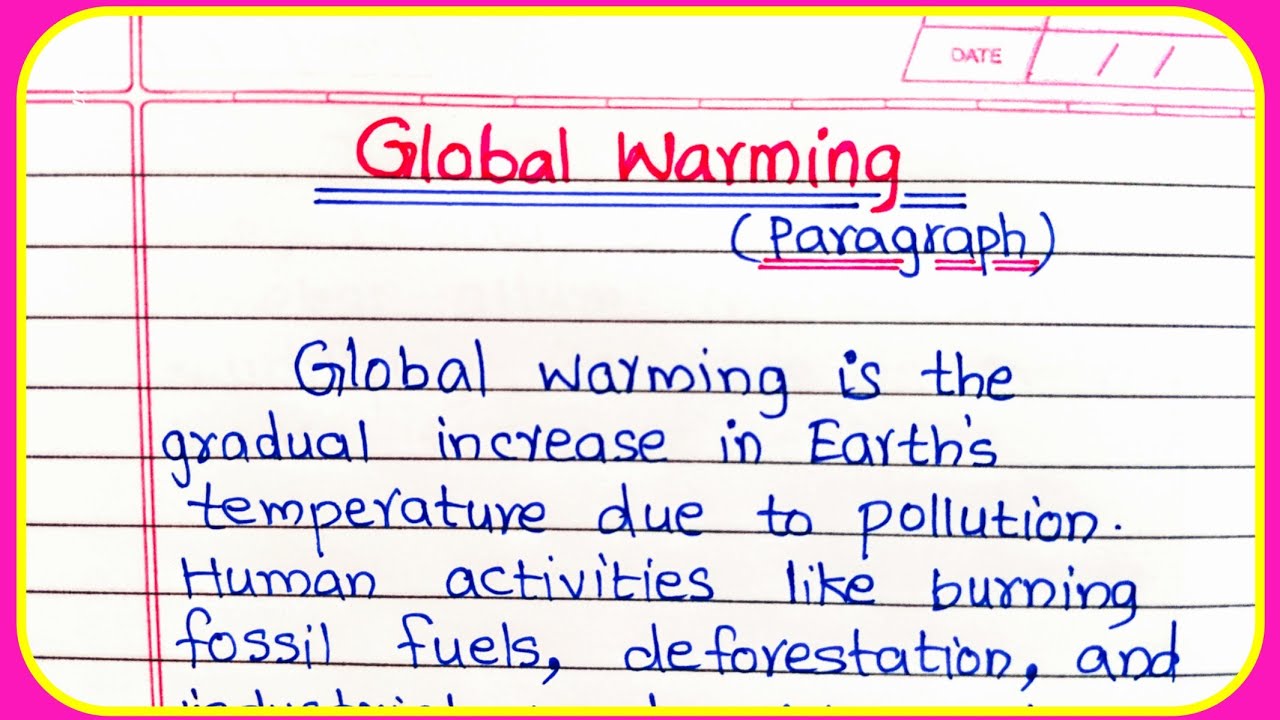 DATE / /
Global Warming
(Paragraph)
Global warming is the
gradual increase in Earth's
temperature due to pollution.
Human activities like burning
fossil fuels, deforestation, and